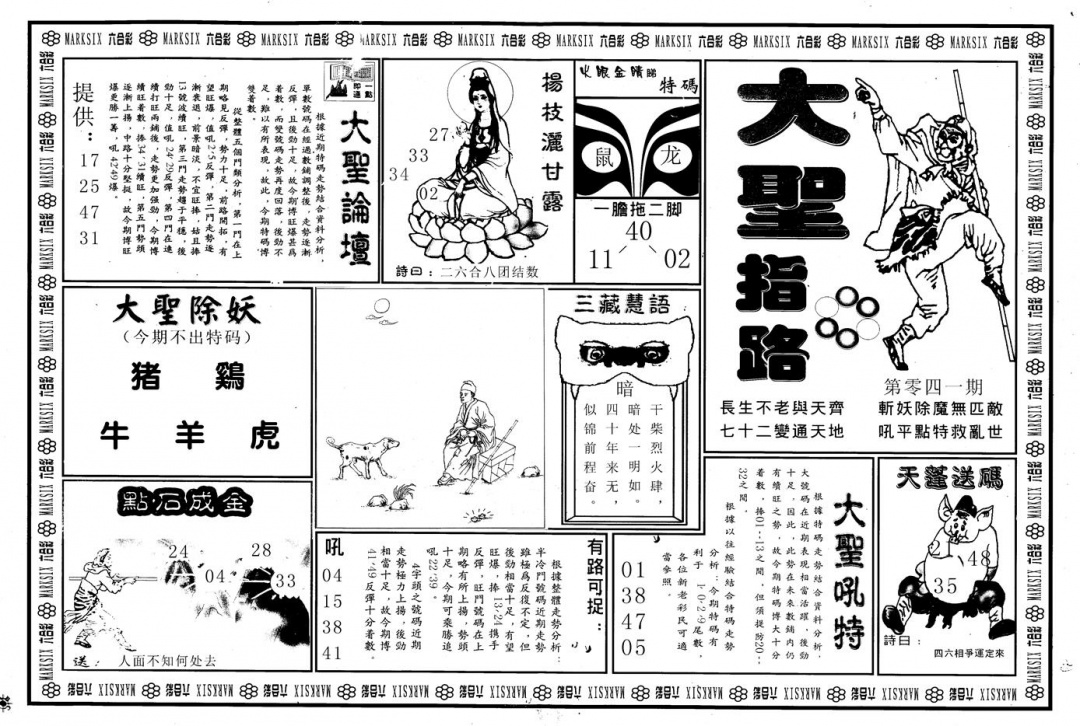 MARKSIX 六合彩 MARKSIX 六合彩 MARKSIX 六合彩 MARKSIX 六合彩 MARKSIX 六合彩 MARKSIX 六合彩 MARKSIX 六合彩 MARKSIX 六合彩 MARKSIX 六合彩 MARKSIX 六合彩
大聖指路
第零四一期
長生不老與天齊
七十二變通天地
斬妖除魔無匹敵
吼平點特救亂世
火眼金睛睇
特碼
鼠
龙
一膽拖二脚
40
11
02
揚枝灑甘露
27
33
34
02
詩曰：二六合八团结数
一点即通
大聖論壇
根據近期特碼走勢結合資料分析，
單數號碼在經過數鋪調整後，走勢逐漸
反彈，且後勁十足，故今期博旺爆甚爲
着數，而雙號碼走勢再度回落，後勁不
足，雖以有所表現，故此，今期特碼博
雙着數。
從整體五個門類分析，第一門在上
期略見反彈，勢力十足，前路開拓，有
望旺爆，值吼2.5反彈，第二門走勢逐
漸衰退，前景暗淡，不宜旺捧，姑且捧
13號波續旺，第三門走勢趨于平穩，後
勁十足，值吼24.29反彈，第四門在連
續打旺兩鋪後，走勢更加强勁，今期博
續旺看數，捧34.31續旺，第五門勢頭
逐漸上揚，中路十分堅挺，故今期博旺
爆更勝一籌，吼42.49爆。
提供：
17
25
47
31
大聖除妖
（今期不出特码）
猪 鷄
牛 羊 虎
三藏慧語
暗
干柴烈火肆，
暗处一明如。
四十年来无，
似锦前程奋。
點石成金
24
28
04
33
送：人面不知何处去
有路可捉：
根據整體走勢分析：
半冷門號碼近期走勢
雖極爲反復不定，但
後勁相當十足，有望
旺爆，捧13.24携手
反彈，旺門號碼在上
期略有所上揚，勢頭
十足，今期可乘勝追
吼22.39。
4字頭之號碼近期
走勢極力上揚，後勁
相當十足，故今期博
41.49反彈十分着數。
吼
04
15
38
41
大聖吼特
根據特碼走勢結合資料分析，
大號碼在近期表現相當活躍，後勁
十足，因此，此勢在未來數鋪内仍
有續旺之勢，故今期特碼博大十分
着數，捧01－13之間，但須提防20－
32之間。
根據以往經驗結合特碼走勢
分析：今期特碼有
利于1.0.2.9尾數。
各位新老彩民可適
當參照。
01
38
47
05
天蓬送碼
48
35
詩曰：
四六相爭運定來
MARKSIX 六合彩 MARKSIX 六合彩 MARKSIX 六合彩 MARKSIX 六合彩 MARKSIX 六合彩 MARKSIX 六合彩 MARKSIX 六合彩 MARKSIX 六合彩 MARKSIX 六合彩 MARKSIX 六合彩